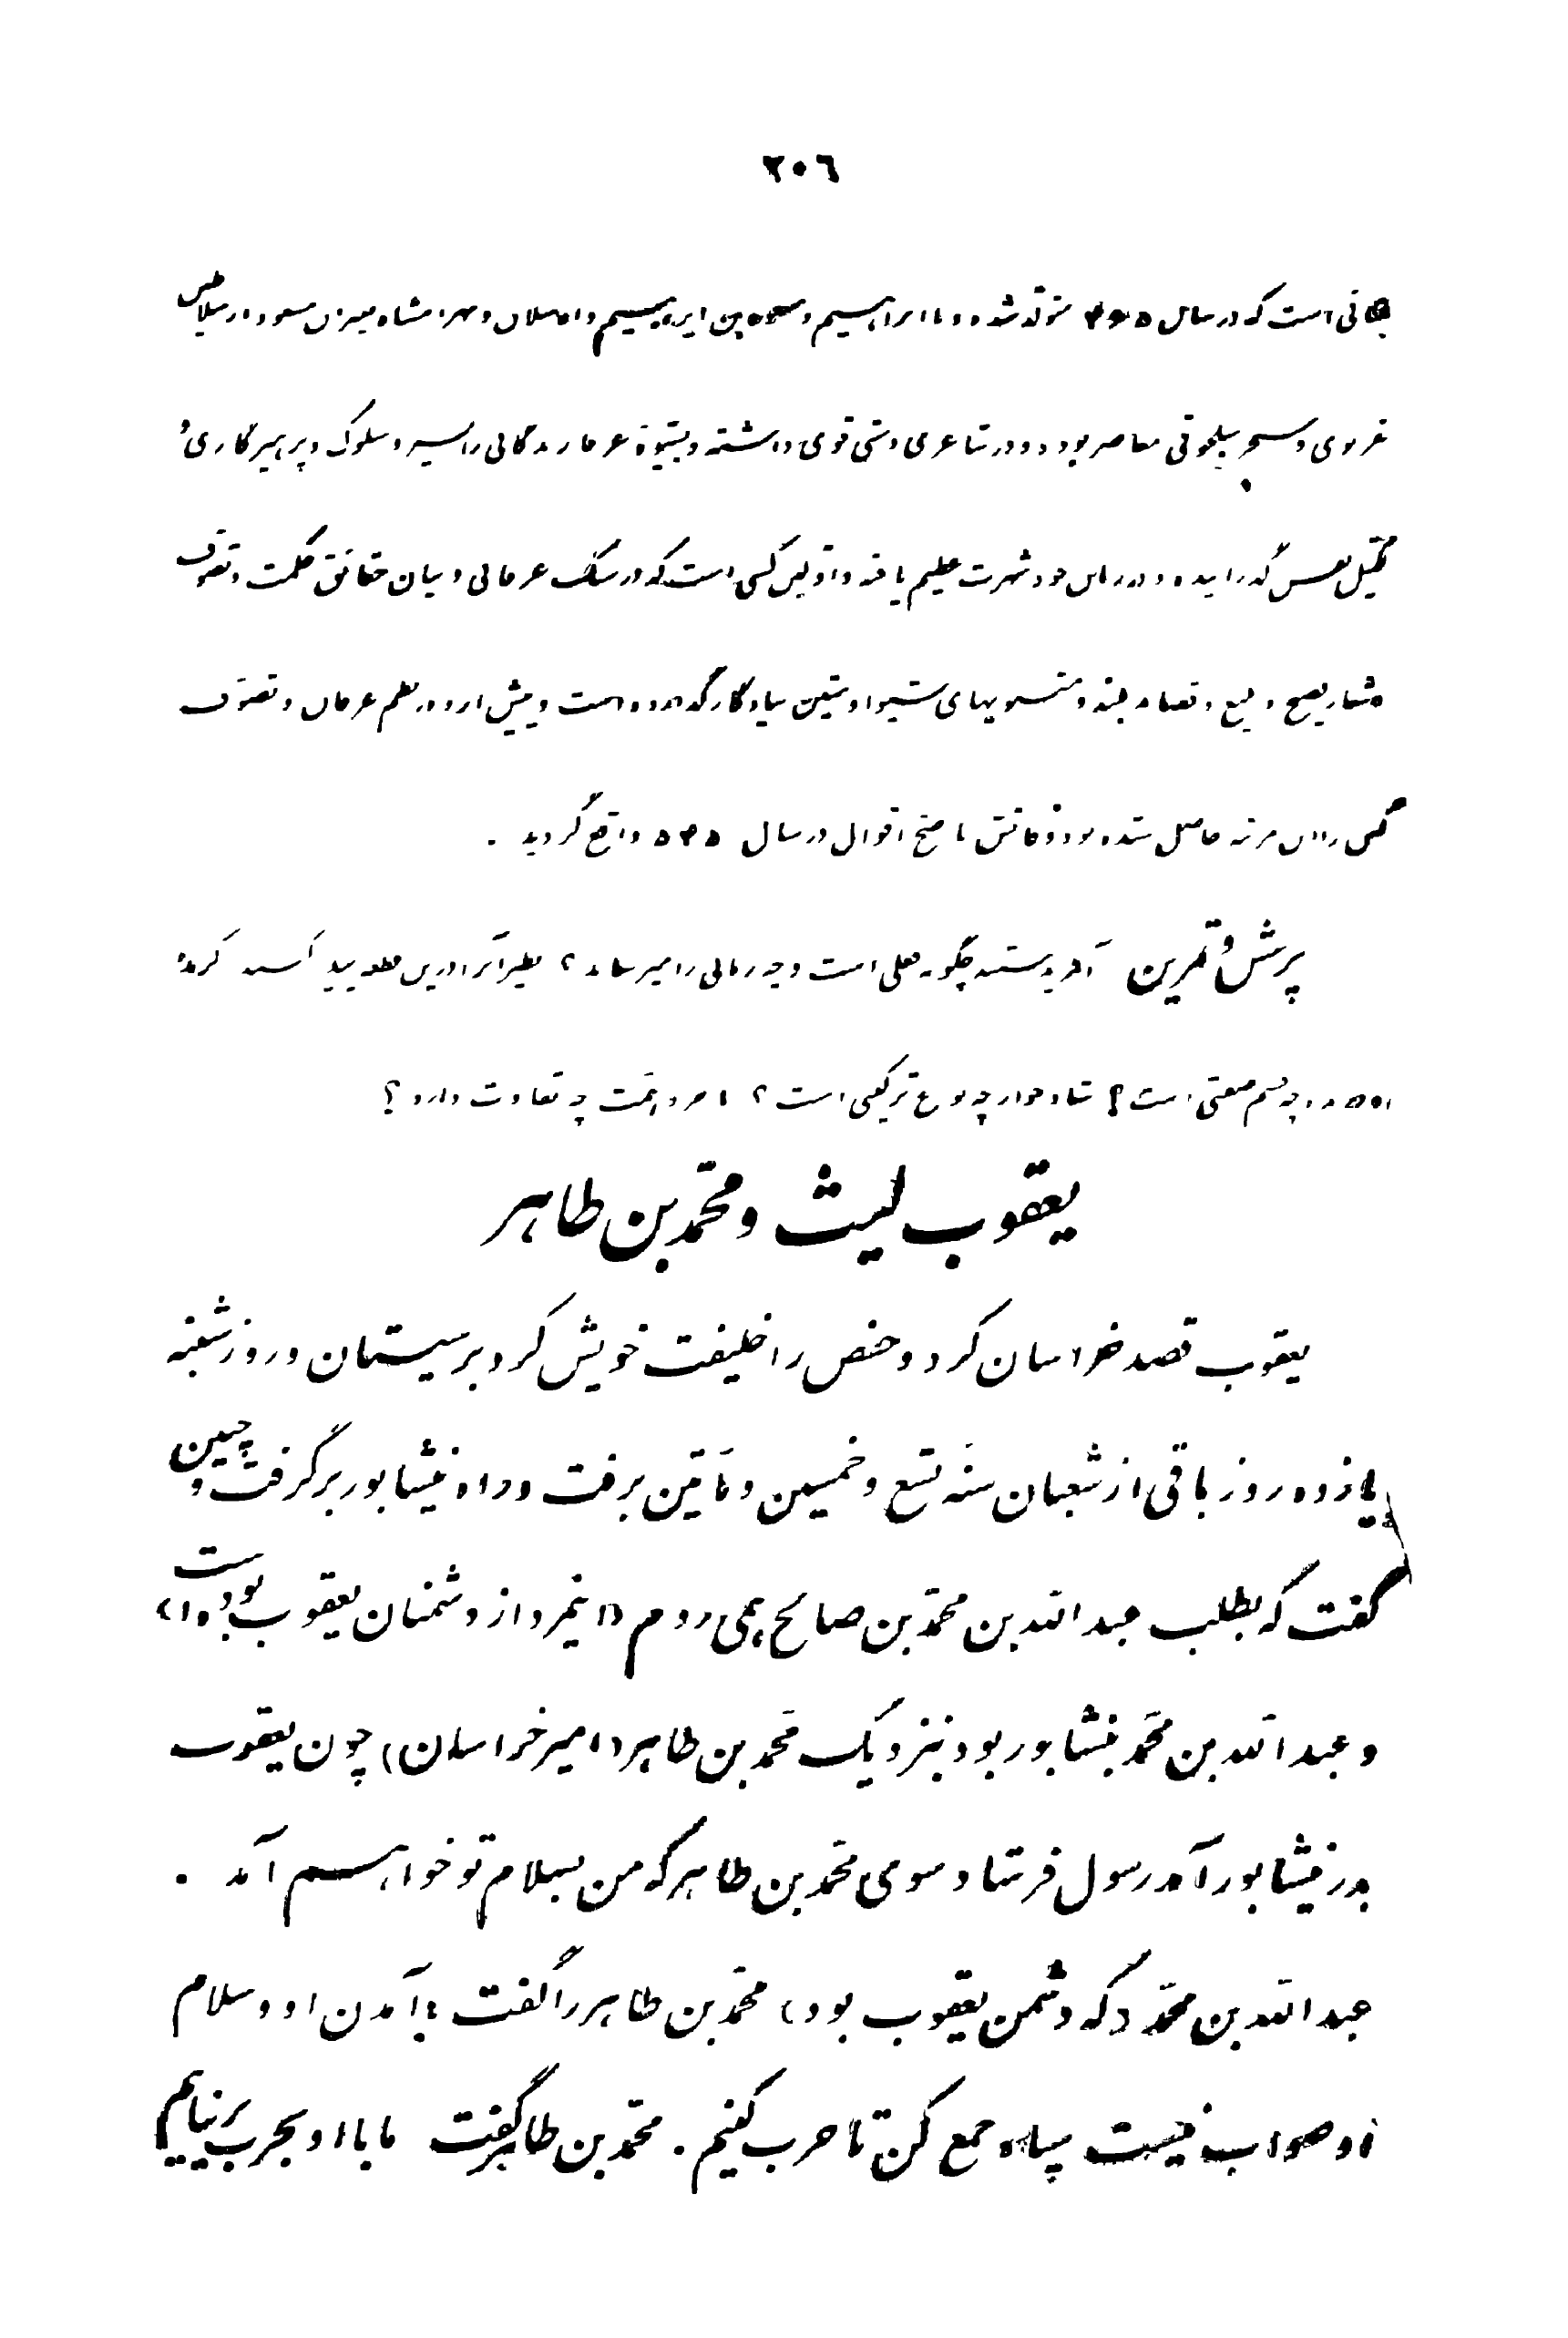 ٢٠٦
است که در سال متولد شده و با ابراهیم و مسعود بن ابراهیم و ارسلان و بهرامشاه میزان مسعود از سلاطین
غزنوی و سنجر سلجوقی معاصر بوده و در شاعری دستی قوی داشته و بشیوهٔ عرفا زندگانی را بسیر و سلوک و پرهیزگاری و
تکمیل نفس گذرانیده و در زمان خود شهرت عظیم یافته و اولین کسی است که در مسلک عرفانی و بیان حقایق حکمت و تصوف
اشعار فصیح و بلیغ و قصاید بلند و مثنویهای شیوا و متین بیادگار گذارده است و پیش از او در نظم عرفان و تصوف
کسی را این مرتبه حاصل نشده بود وفاتش باصح اقوال در سال ٥٤٥ واقع گردید .
پرسش و تمرین آفریدستند چگونه فعلی است و چه زمانی را میرساند ؟ نظیر آنرا درین
چه قسم صفتی است ؟ شاد خوار چه نوع ترکیبی است ؟ با چه تفاوت دارد ؟
یعقوب لیث و محمّد بن طاهر
یعقوب قصد خراسان کرد و حفص را خلیفت خویش کرد بر سیستان و روز شنبه
یازده روز باقی از شعبان سنه تسع و خمسین و مأتین برفت و راه نیشابور برگرفت و چنین
گفت که بطلب عبدالله بن محمّد بن صالح همی روم (اینمرد از دشمنان یعقوب بوده است)
و عبدالله بن محمّد بنیشابور بود بنزدیک محمّد بن طاهر (امیر خراسان) چون یعقوب
بدر نیشابور آمد رسول فرستاد سوی محمّد بن طاهر که من بسلام تو خواهم آمد .
عبدالله بن محمّد (که دشمن یعقوب بود) محمّد بن طاهر را گفت بآمدن او و سلام
او صواب نیست سپاه جمع کن تا حرب کنیم . محمّد بن طاهر گفت ما با او بحرب برنیاییم